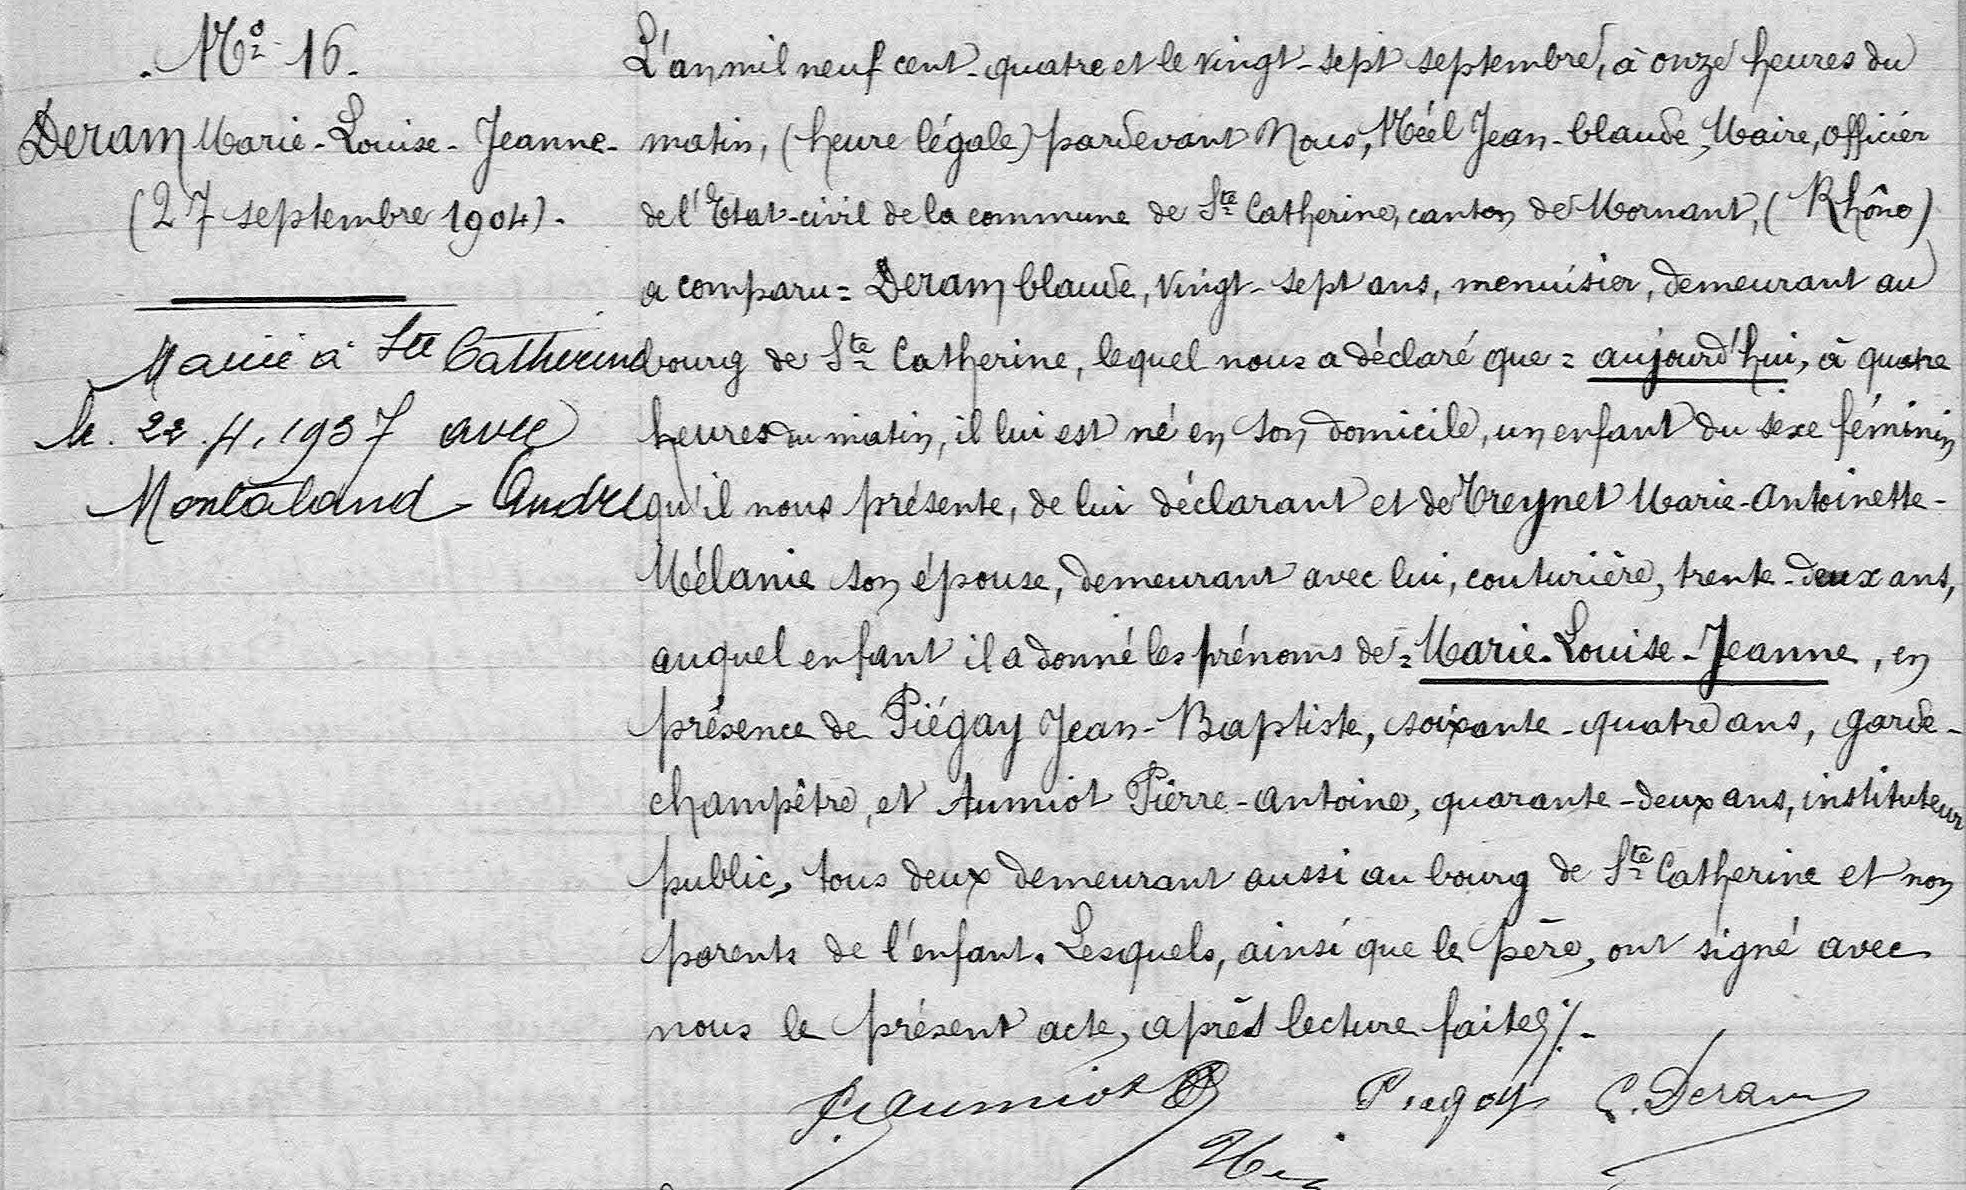 N° 16.
Deram Marie-Louise-Jeanne-
(27 septembre 1904).
Marié à Ste Catherine
le 22.4.1937 avec
Montaland André
L'an mil neuf cent quatre et le vingt-sept septembre, à onze heures du
matin, (heure légale) pardevant Nous, Néel Jean-Claude, Maire, officier
de l'Etat-civil de la commune de Ste Catherine, canton de Mornant, (Rhône)
a comparu = Deram Claude, vingt-sept ans, menuisier, demeurant au
bourg de Ste Catherine, lequel nous a déclaré que = aujourd'hui, à quatre
heures du matin, il lui est né en son domicile, un enfant du sexe féminin
qu'il nous présente, de lui déclarant et de Treynet Marie-Antoinette-
Mélanie son épouse, demeurant avec lui, couturière, trente-deux ans,
auquel enfant il a donné les prénoms de = Marie-Louise-Jeanne, en
présence de Piégay Jean-Baptiste, soixante-quatre ans, garde-
champêtre, et Aumiot Pierre-Antoine, quarante-deux ans, instituteur
public, tous deux demeurant aussi au bourg de Ste Catherine et non
parents de l'enfant. Lesquels, ainsi que le père, ont signé avec
nous le présent acte, après lecture faite ./.
Aumiot Piegay C. Deram